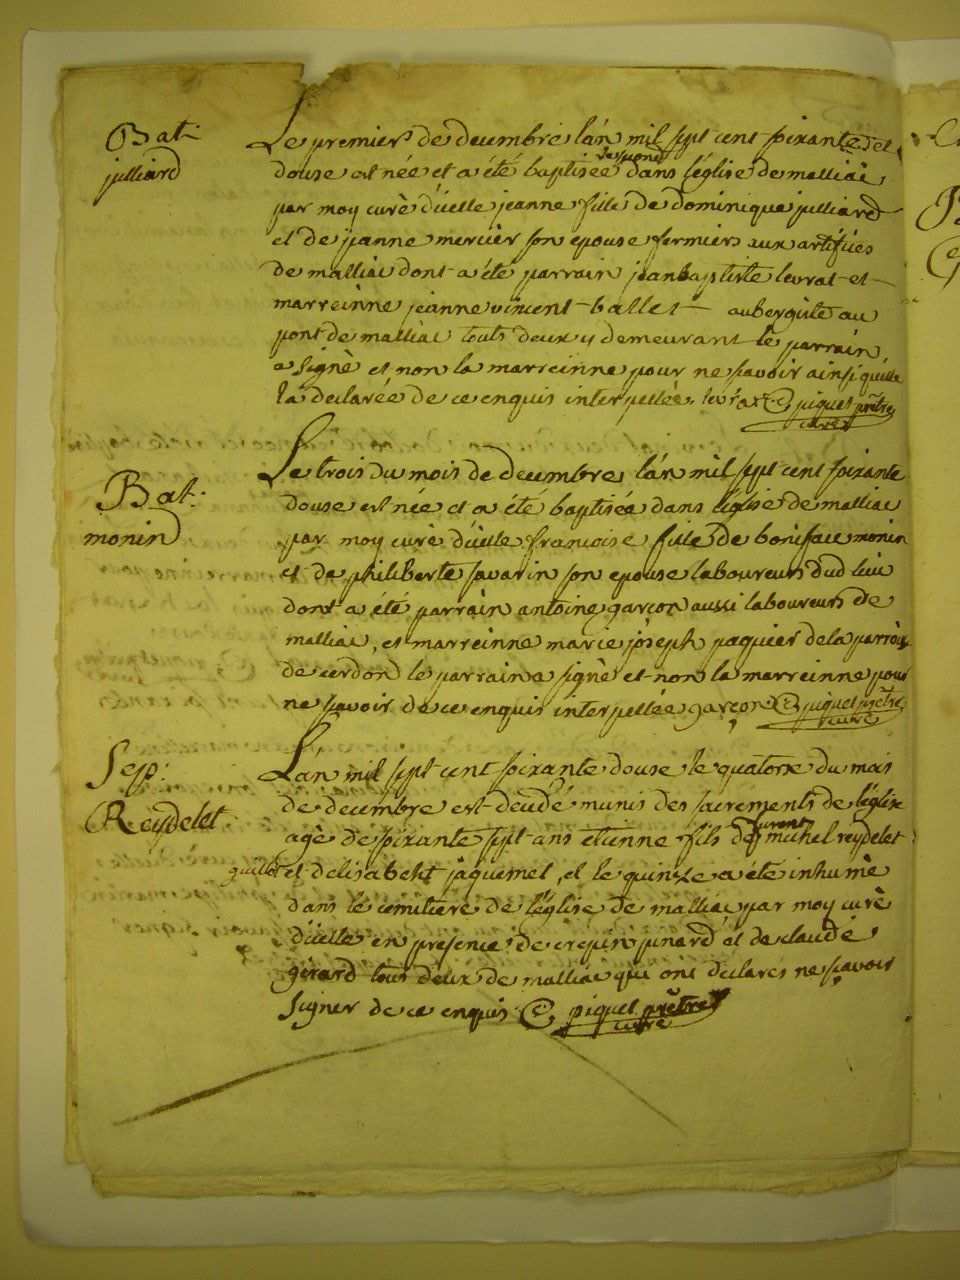 Bat:
julliard
Le premier de decembre l'an mil sept cent soixante et
douse est née et a été baptisée dans l'église de malliac
par moy curè d'icelle jeanne fille de dominique julliard
et de jeanne mercier son epouse fermiers aux artifices
de malliac dont a été parrain jean baptiste levrat et
marreinne jeanne vincent ballet aubergiste au
pont de malliac touts deux y demeurant le parrain
a signè et non la marreinne pour ne savoir ainsi qu'elle
l'a declarée de ce enquis interpellée. levrat piquet prêtre
curé
Bat:
monin
Le trois du mois de decembre l'an mil sept cent soixante
douse est née et a été baptisée dans l'église de malliac
par moy curè d'icelle francoise fille de boniface monin
et de philiberte savarin son epouse laboureurs dud lieu
dont a été parrain antoine garçon aussi laboureur de
malliac, et marreinne marie joseph paquier de la parroi
de cerdon le parrain a signè et non la marreinne pour
ne savoir de ce enquis interpellée garçon piquet prêtre
curé
Sep:
Reydelet
L'an mil sept cent soixante douse le quatorze du mois
de decembre est decedé munis des sacrements de l'église
agè de soixante sept ans etienne fils de michel reydelet
et d'elisabeht jaquemet, et le quinze a été inhumè
dans le cemitiere de l'église de malliac par moy curè
d'icelle en presence de crepin junard et de claude
girard tous deux de malliac qui ont declarés ne savoir
signer de ce enquis piquet prêtre
curé